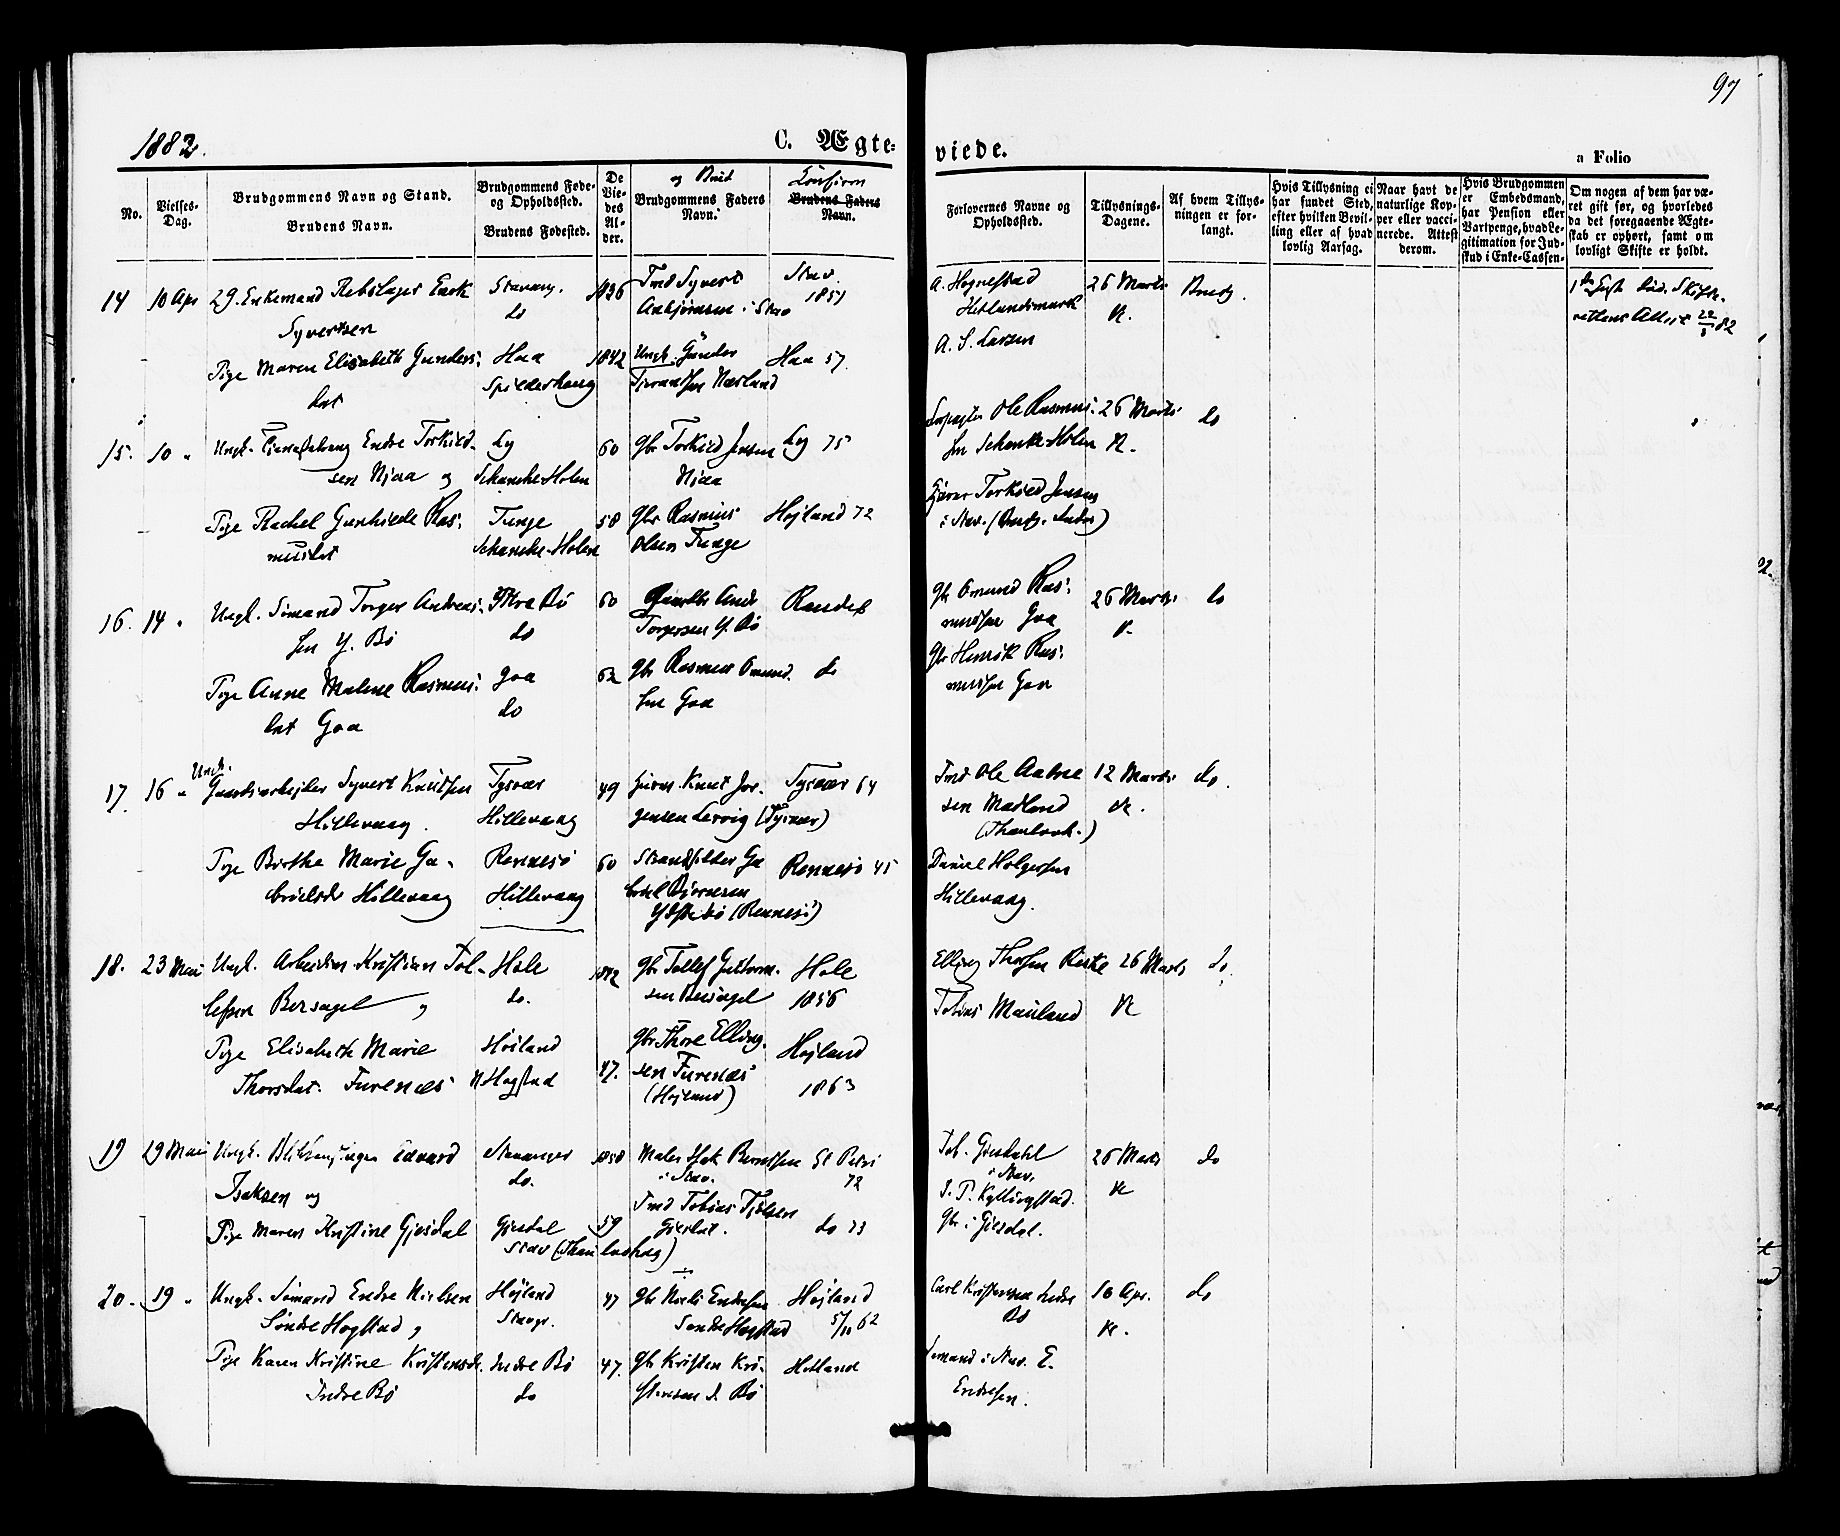 97
1882.
C. Ægteviede.
a Folio
No.
Vielses-Dag.
Brudgommens Navn og Stand.
Brudens Navn.
Brudgommens Føde- og Opholdssted.
Brudens Fødested.
De Viedes Alder.
og Brud
Brudgommens Faders Navn.
Confirm
Brudens Faders Navn.
Forlovernes Navne og Opholdssted.
Tillysnings-Dagene.
Af hvem Tillysningen er forlangt.
Hvis Tillysning ei har fundet Sted, efter hvilken Bevilling eller af hvad lovlig Aarsag.
Naar havt de naturlige Kopper eller vaccinerede. Attest derom.
Hvis Brudgommen er Embedsmand, har Pension eller Vartpenge, hvad Legitimation for Indskud i Enke-Cassen.
Om nogen af dem har været gift før, og hvorledes da det foregaaende Ægteskab er ophørt, samt om lovligt Skifte er holdt.
14 10 Apr 29. Enkemand Rebslager Enok Syvertsen
Stavang. do 1836
Tmd Syvert Asbjørnsen i Stav
Stav. 1851
A. Hognestad Hetlandsmark
A. S. Larsen
26 Marts V. Brudg.
Pige Maren Elisabeth Gundersdat
Haa 1842
Ungk. Gunder Haa 57.
15. 10 " Ungk. Endre Torkildsen Njaa og
Ly Schancke-Holen 60
Gbr Torkild Jensen Njaa
Ly 75
Ole Rasmussen Schancke-Holen
26 Marts V. do
Pige Rachel Gunhilde Rasmusdat
Tunge Schancke-Holen 58
Gbr Rasmus Olsen Tunge
Højland 72
Torkild Jensen i Stav.
16. 14 " Ungk. Sømand Torger Andreassen Y. Bø
Ytre Bø do 60
Torgersen Y. Bø
Randeb
Gbr Omund Rasmussen Goa
26 Marts V. do
Pige Anne Malene Rasmusdat Goa
Goa do 62
Gbr Rasmus Omundsen Goa do
Gbr Henrik Rasmussen Goa
17. 16 " Ungk. Syvert Knutsen Hillevaag.
Tysvær Hillevaag 49
Knut Jorgensen Lervig (Tysvær)
Tysvær 64
Tmd Ole Aadnesen Madland
12 Marts V. do.
Pige Birthe Marie Gabrielsdr Hillevaag
Rennesø Hillevaag 60
Strandsidder Gabriel Bjørnsen (Rennesø)
Rennesø 45
Daniel Holgersen Hillevaag.
18. 23 Mai Ungk. Arbeider Kristian Tollefsen Bersagel og
Hole do. 1842
Gbr Tollef Guttormsen Bersagel
Hole 1856
Elling Thorsen Riske
26 Marts V. do
Tobias Mauland
Pige Elisabeth Marie Thorsdat. Furenæs
Høiland N Hogstad 47.
Gbr Thore Ellingsen Furenæs (Højland)
Højland 1863
19 29 Mai Ungk. Edvard Isaksen og
Stavanger do. 1858
Maler Isak Berntsen i Stav.
St Petri 72
Tob. Gjesdahl i Stav.
26 Marts V. do
Pige Maren Kristine Gjesdal
Gjesdal Stav 59
Tmd Tobias Gjesdal.
do 73
J. P. Kyllingstad. Gbr i Gjesdal.
20. 19 " Ungk. Sømand Endre Nielsen Søndre Hogstad og
Højland Stavgr. 47
Gbr Niels Endresen Søndre Hogstad
Højland 5/10 62
Carl Kristensen Indre Bø
10 Apr. V. do
Pige Karen Kristine Kristensdr. Indre Bø
Indre Bø do 47.
Gbr Kristen Kristensen I. Bø
Hetland
Sømand i Stav. E. Endresen.